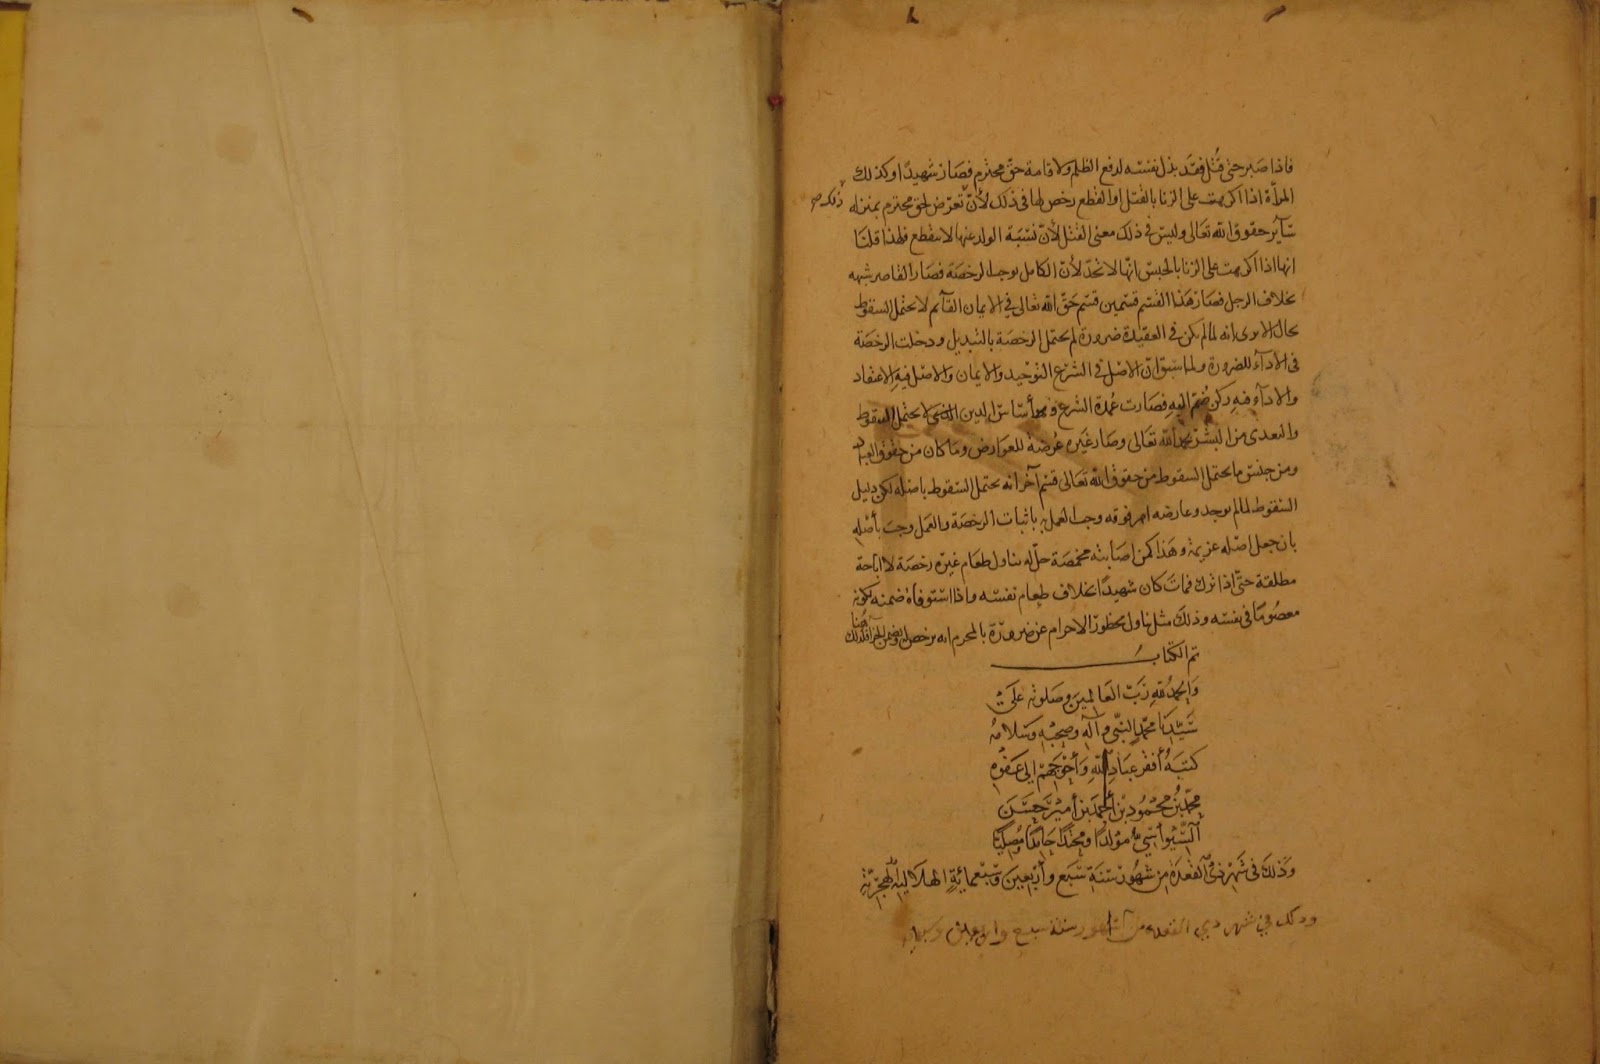 فاذا صبر حتى قُتل فقد بذل نفسه لدفع الظلم ولاقامة حق محترم فصار شهيدًا وكذلك
المرأة اذا اكرهت على الزنا بالقتل او القطع رخص لها في ذلك لأن تعرّض لحق محترم بمنزلة
ذلك صح
سآير حقوق الله تعالى وليس في ذلك معنى القتل لأن نسبة الولد عنها لا تنقطع فلهذا قلنا
انها اذا اكرهت على الزنا بالحبس انها لا تحد لأن الكامل يوجب الرخصة فصار القاصر شبهه
بخلاف الرجل فصار هذا القسم قسمين قسم حق الله تعالى في الايمان القآئم لا يحتمل السقوط
بحال الا يرى انه لما لم يكن في العقيدة ضرورة لم يحتمل الرخصة بالتبديل ودخلت الرخصة
في الادآء للضرورة ولما سبق ان الاصل في الشرع التوحيد والايمان والاصل فيه الاعتقاد
والادآء فيه ركن ضم اليه فصارت عمدة الشرع واساس الدين لا يحتمل السقوط
والتعدى من البشر بحمد الله تعالى وصار غيره عرضة للعوارض وما كان من حقوق العباد
ومن جنس ما يحتمل السقوط من حقوق الله تعالى قسم آخر انه يحتمل السقوط باصله لكن دليل
السقوط لما لم يوجد وعارضه امر فوقه وجب العمل به باثبات الرخصة والعمل وجب بأصله
بان جعل اصله عزيمة وهذا كمن اصابته مخمصة حلّ له تناول طعام غيره رخصة لا اباحة
مطلقة حتى اذا ترك فمات كان شهيدًا بخلاف طعام نفسه واذا استوفاه ضمنه لكونه
معصومًا في نفسه وذلك مثل تناول محظور الاحرام عن ضرورة بالمحرم انه يرخص له ويضمن الجزآء فكذلك هنا
تم الكتاب
والحمد لله رب العالمين وصلوته على
سيدنا محمد النبي وآله وصحبه وسلامه
كتبه أفقر عباد الله وأحوجهم الى عفوه
محمد بن محمود بن أحمد بن أمير حسن
السيواسي مولدًا ومحتدًا حامدًا ومصليًا
وذلك في شهر ذي القعدة من شهور سنة سبع وأربعين وسبعمائة الهلالية الهجرية
وذلك في شهر ذي القعدة من شهور سنة سبع واربعين